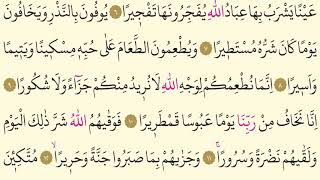 عَيْنًا يَشْرَبُ بِهَا عِبَادُ اللّٰهِ يُفَجِّرُونَهَا تَفْجِيرًا ٦ يُوفُونَ بِالنَّذْرِ وَيَخَافُونَ
يَوْمًا كَانَ شَرُّهُ مُسْتَطِيرًا ٧ وَيُطْعِمُونَ الطَّعَامَ عَلٰى حُبِّه۪ مِسْك۪ينًا وَيَت۪يمًا
وَاَس۪يرًا ٨ اِنَّمَا نُطْعِمُكُمْ لِوَجْهِ اللّٰهِ لَا نُر۪يدُ مِنْكُمْ جَزَٓاءً وَلَا شُكُورًا ٩
اِنَّا نَخَافُ مِنْ رَبِّنَا يَوْمًا عَبُوسًا قَمْطَر۪يرًا ١٠ فَوَقٰيهُمُ اللّٰهُ شَرَّ ذٰلِكَ الْيَوْمِ
وَلَقّٰيهُمْ نَضْرَةً وَسُرُورًاۚ ١١ وَجَزٰيهُمْ بِمَا صَبَرُوا جَنَّةً وَحَر۪يرًاۙ ١٢ مُتَّكِـ۪ٔينَ